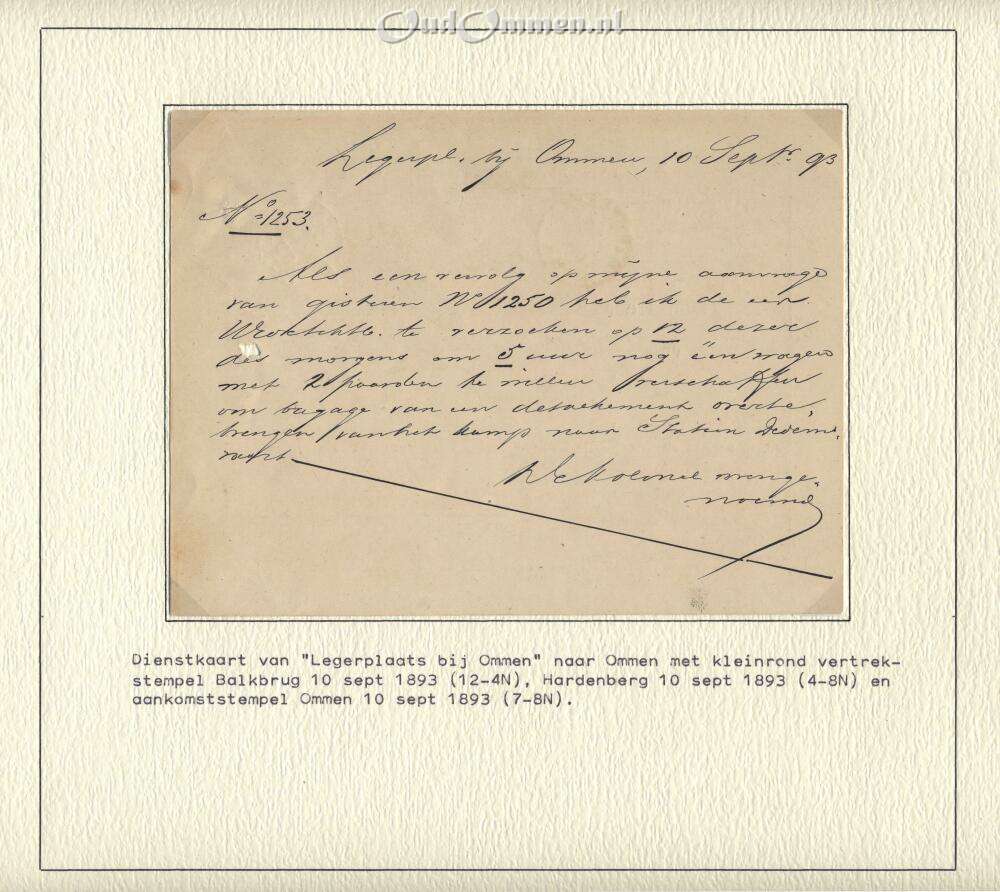 OudOmmen.nl
Legerpl. bij Ommen, 10 Septr. 93
No 1253.
Als een vervolg op mijne aanvrage
van gisteren No 1250 heb ik de eer
te verzoeken op 12 dezer
des morgens om 5 uur nog één wagen
met 2 paarden te willen verschaffen
om bagage van een detachement over te
brengen van het kamp naar Station Dedems-
vaart
De Kolonel voorge-
noemd
Dienstkaart van "Legerplaats bij Ommen" naar Ommen met kleinrond vertrek-
stempel Balkbrug 10 sept 1893 (12-4N), Hardenberg 10 sept 1893 (4-8N) en
aankomststempel Ommen 10 sept 1893 (7-8N).